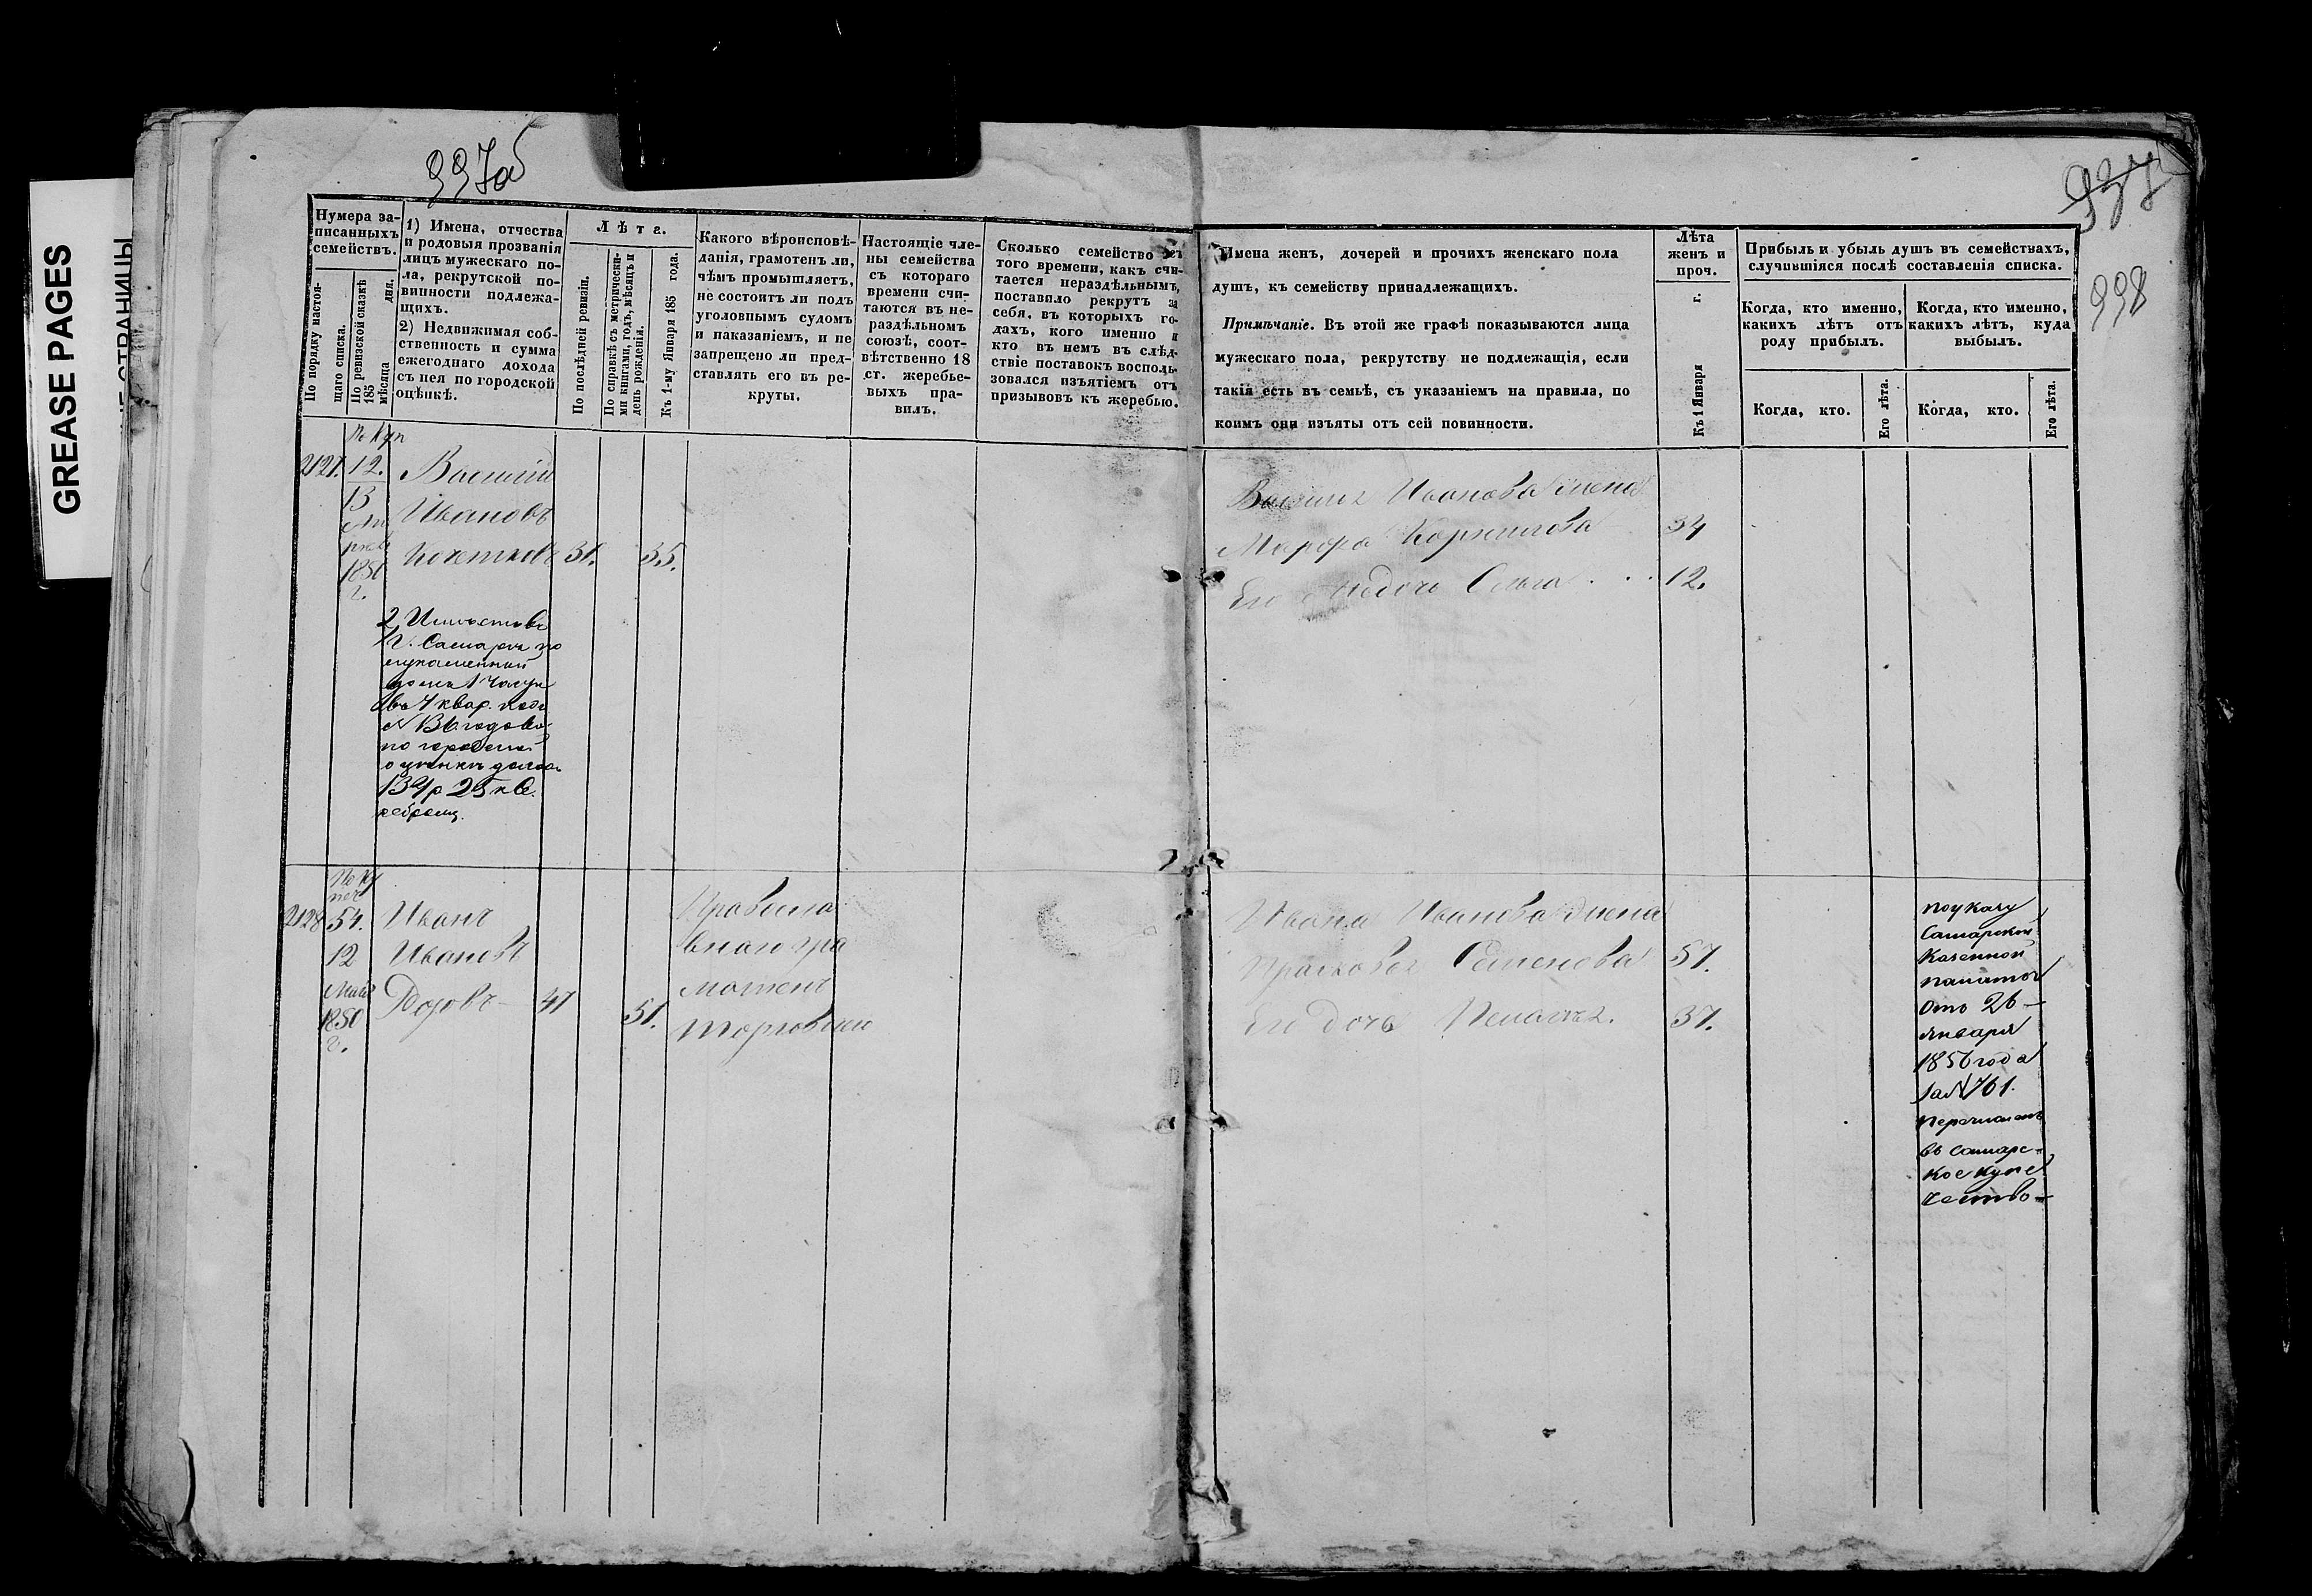 GREASE PAGES
997об
998
Нумера за-
писанныхъ
семействъ.
По порядку настоя-
щаго списка.
По ревизской сказкѣ
185
мѣсяца дня.
1) Имена, отчества
и родовыя прозванія
лицъ мужескаго по-
ла, рекрутской по-
винности подлежа-
щихъ.
2) Недвижимая соб-
ственность и сумма
ежегоднаго дохода
съ нея по городской
оцѣнкѣ.
Лѣта.
По послѣдней ревизіи.
По справкѣ съ метрически-
ми книгами, годъ, мѣсяцъ и
день рожденія.
Къ 1-му Января 185 года.
Какого вѣроисповѣ-
данія, грамотенъ ли,
чѣмъ промышляетъ,
не состоитъ ли подъ
уголовнымъ судомъ
и наказаніемъ, и не
запрещено ли пред-
ставлять его въ ре-
круты.
Настоящіе чле-
ны семейства
съ котораго
времени счи-
таются въ не-
раздѣльномъ
союзѣ, соот-
вѣтственно 18
ст. жеребье-
выхъ пра-
вилъ.
Сколько семейство съ
того времени, какъ счи-
тается нераздѣльнымъ,
поставило рекрутъ за
себя, въ которыхъ го-
дахъ, кого именно и
кто въ немъ въ слѣд-
ствіе поставокъ восполь-
зовался изъятіемъ отъ
призывовъ къ жеребью.
Имена женъ, дочерей и прочихъ женскаго пола
душъ, къ семейству принадлежащихъ.
Примѣчаніе. Въ этой же графѣ показываются лица
мужескаго пола, рекрутству не подлежащія, если
такія есть въ семьѣ, съ указаніемъ на правила, по
коимъ они изъяты отъ сей повинности.
Лѣта
женъ и
проч.
Къ 1 Января г.
Прибыль и убыль душъ въ семействахъ,
случившіяся послѣ составленія списка.
Когда, кто именно,
какихъ лѣтъ отъ
роду прибылъ.
Когда, кто именно,
какихъ лѣтъ, куда
выбылъ.
Когда, кто.
Его лѣта.
Когда, кто.
Его лѣта.
По куп
2127. 12. Василий
13 Ивановъ
1850 31. 35.
г.
2 Имѣетъ въ
г. Самарѣ
въ 4 квар. подъ
по городской
оцѣнкѣ
134р 25 к се
ребромъ.
Ивановa жена
Марфа 34
Его дочь Ольга 12.
По ку
печ
2128 54. Иванъ
12 Ивановъ
Мая
1850 47 51.
г.
Правосла
внаго гра
мотенъ
торговлею
Ивана Иванова жена
Прасковья Семенова 57.
Его дочь Пелагея. 37.
по указу
Самарской
Казенной
палаты
отъ 26
января
1856 года
за N 761.
перечисленъ
въ самарс-
кое купе
чество